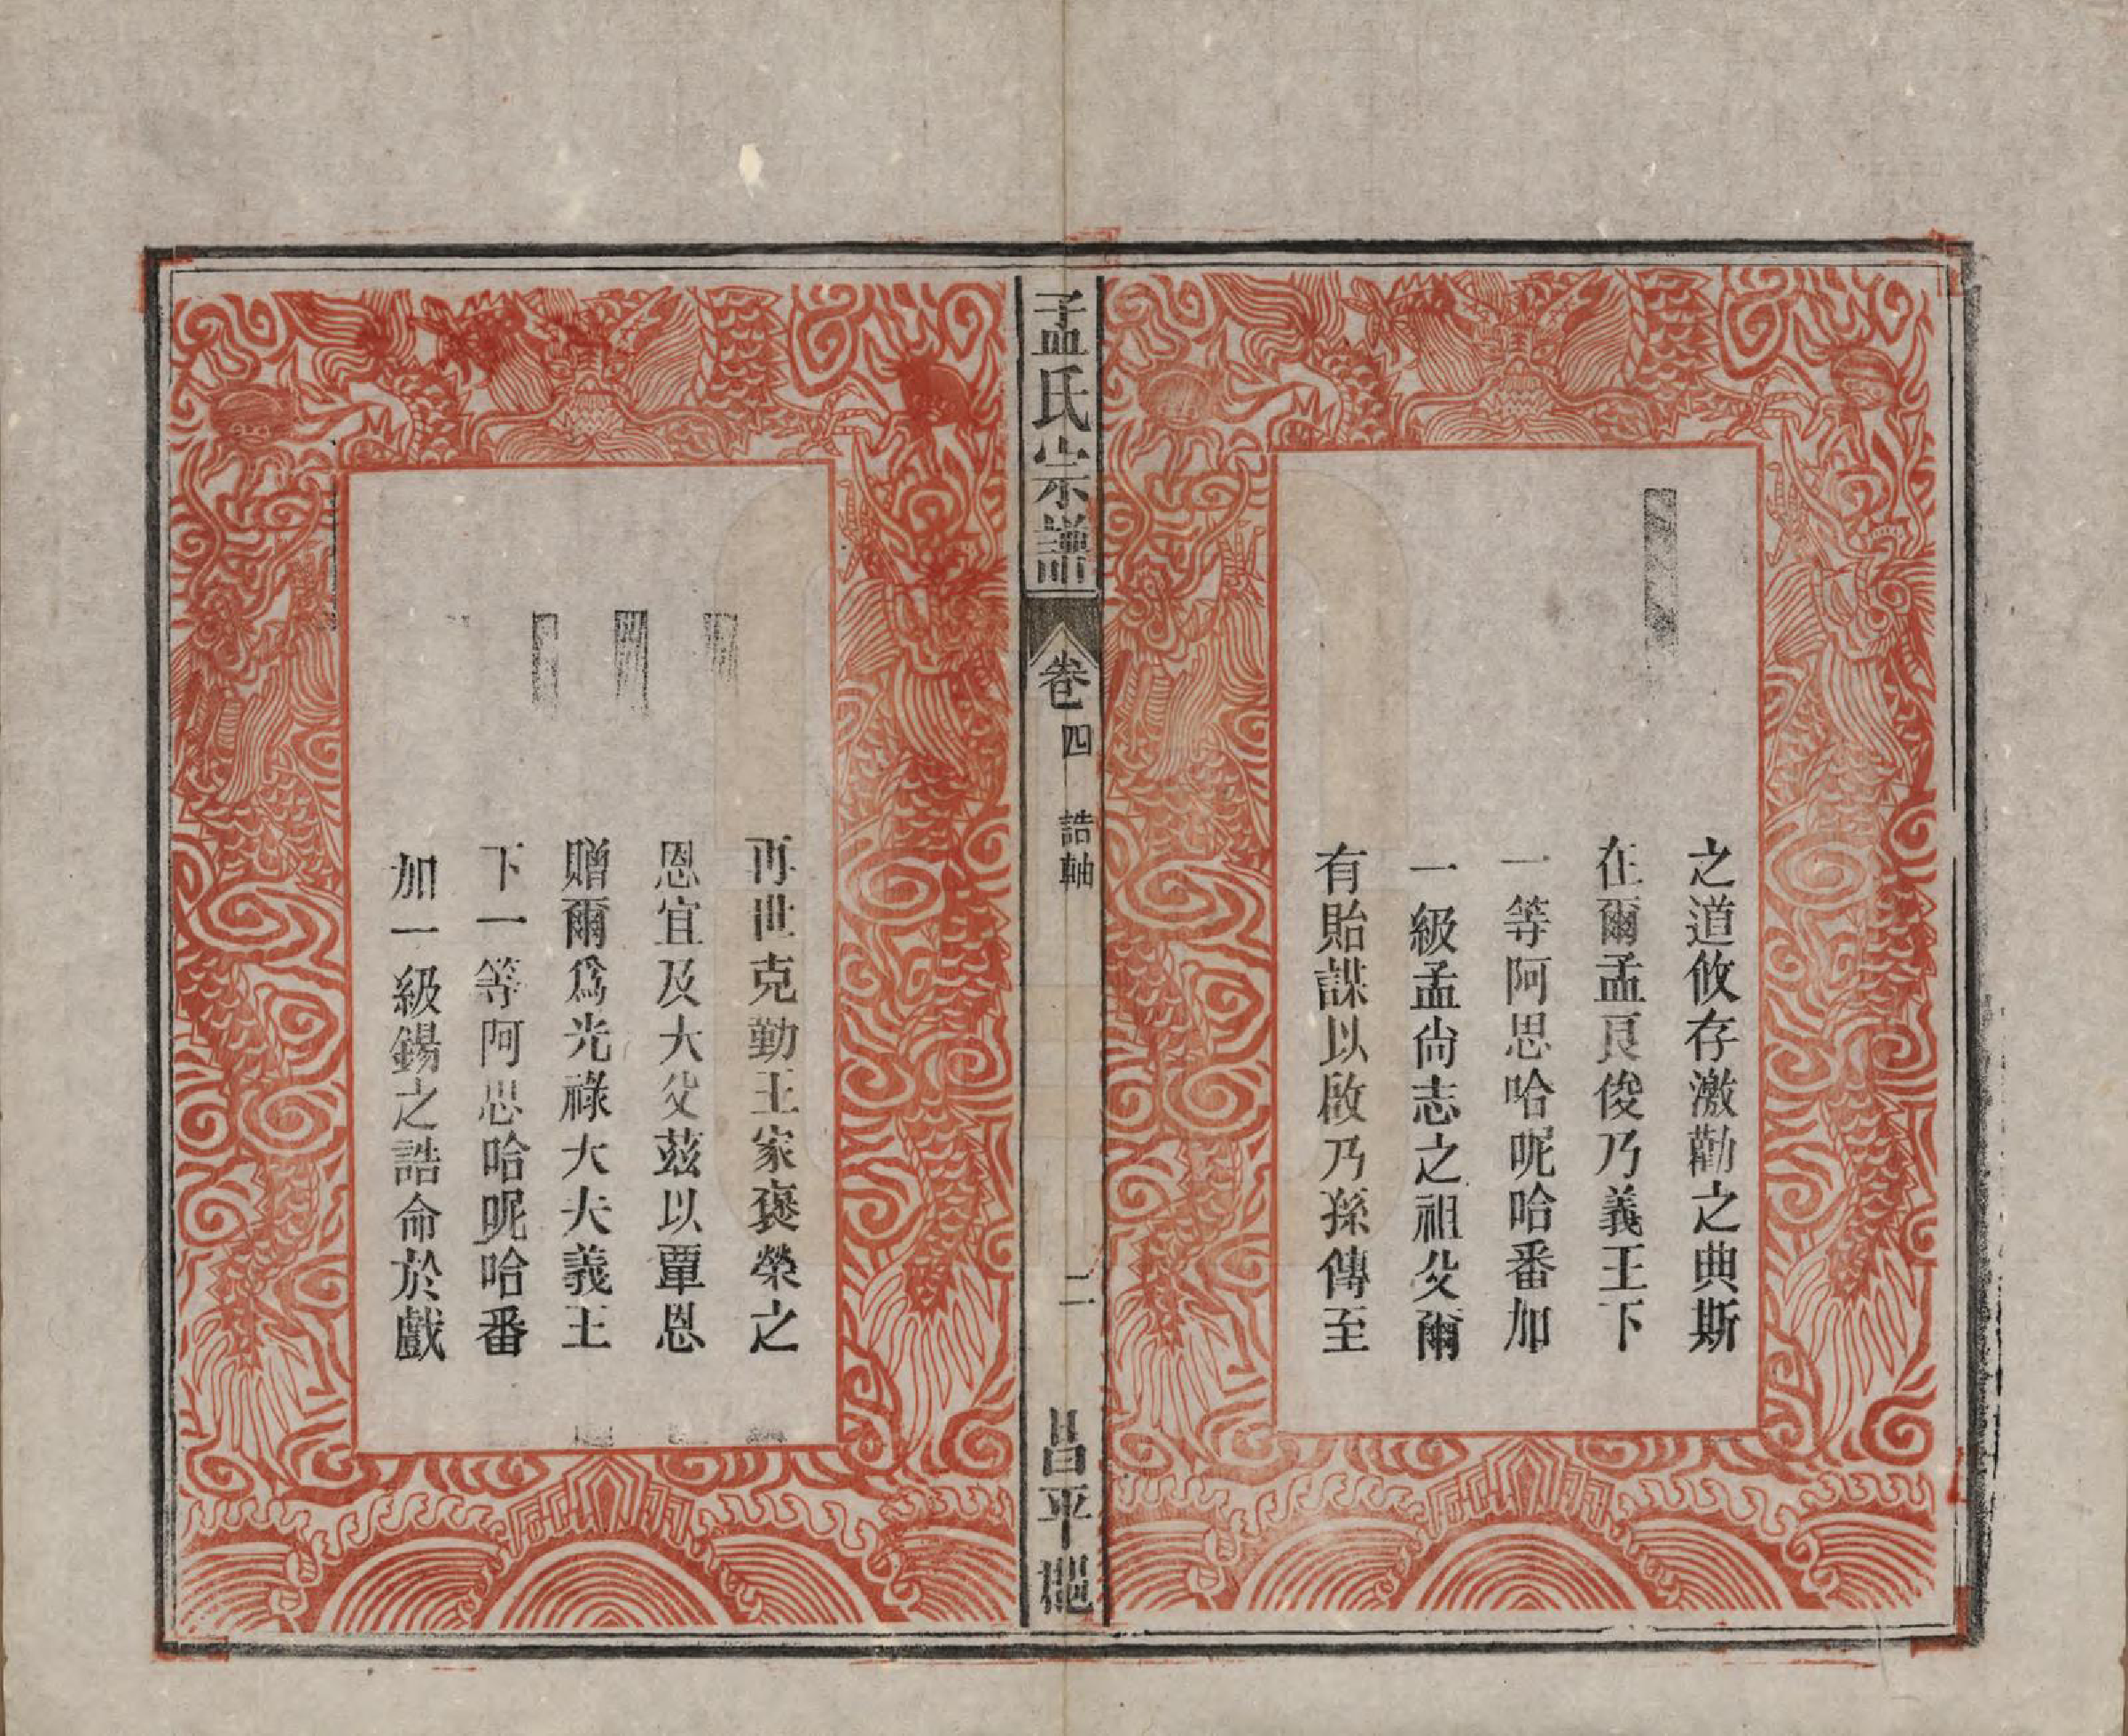 之道攸存激勸之典斯
在爾孟良俊乃義王下
一等阿思哈呢哈番加
一級孟尚志之祖父爾
有貽謀以啟乃孫傳至
孟氏宗譜
卷四
誥軸
二
昌平
再世克勤王家褒榮之
恩宜及大父茲以覃恩
贈爾為光祿大夫義王
下一等阿思哈呢哈番
加一級錫之誥命於戲